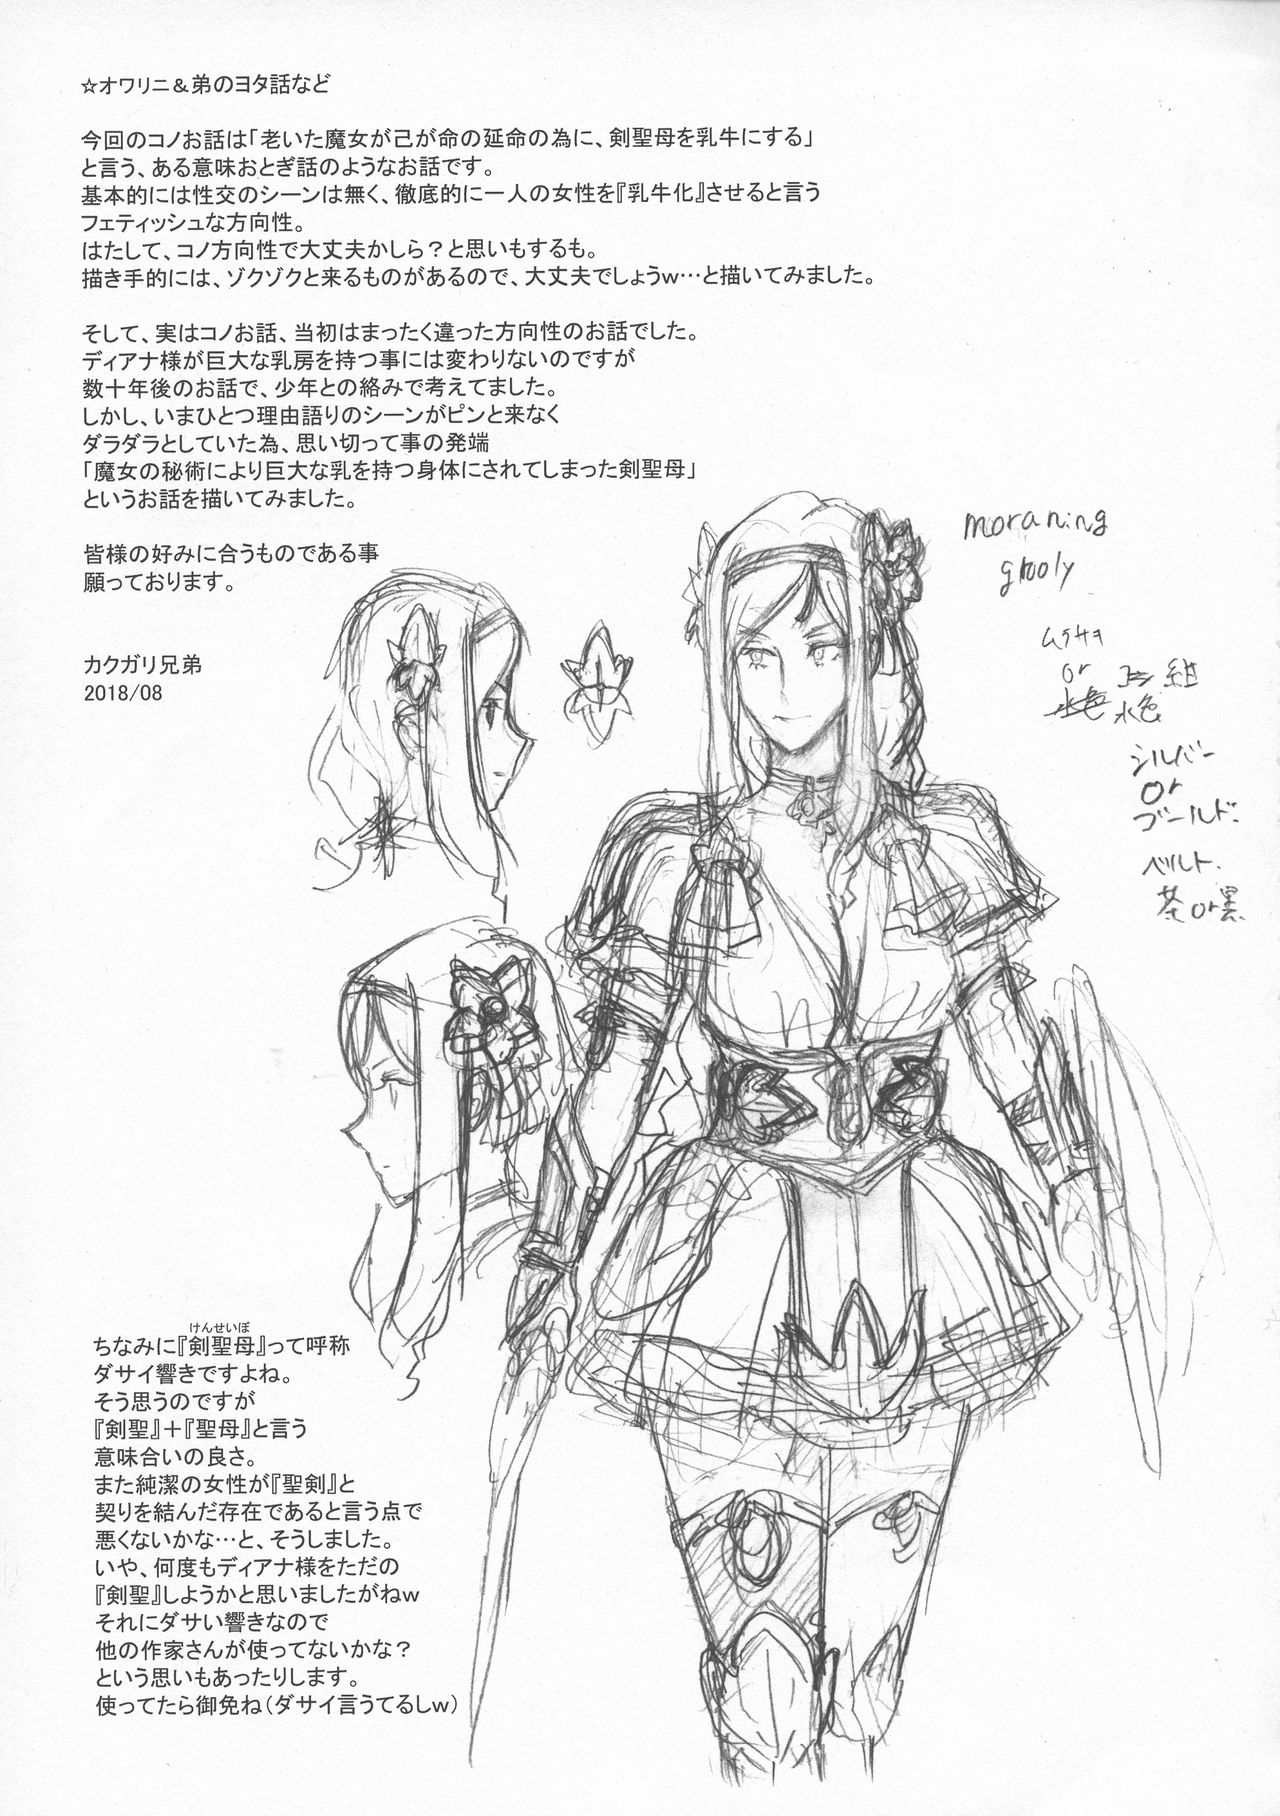 ☆オワリニ＆弟のヨタ話など
今回のコノお話は「老いた魔女が己が命の延命の為に、剣聖母を乳牛にする」
と言う、ある意味おとぎ話のようなお話です。
基本的には性交のシーンは無く、徹底的に一人の女性を『乳牛化』させると言う
フェティッシュな方向性。
はたして、コノ方向性で大丈夫かしら？と思いもするも。
描き手的には、ゾクゾクと来るものがあるので、大丈夫でしょうｗ…と描いてみました。
そして、実はコノお話、当初はまったく違った方向性のお話でした。
ディアナ様が巨大な乳房を持つ事には変わりないのですが
数十年後のお話で、少年との絡みで考えてました。
しかし、いまひとつ理由語りのシーンがピンと来なく
ダラダラとしていた為、思い切って事の発端
「魔女の秘術により巨大な乳を持つ身体にされてしまった剣聖母」
というお話を描いてみました。
皆様の好みに合うものである事
願っております。
カクガリ兄弟
2018/08
moraning
grooly
or
水色
シルバー
or
ゴールド.
ベルト.
茶or黒.
けんせいぼ
ちなみに『剣聖母』って呼称
ダサイ響きですよね。
そう思うのですが
『剣聖』＋『聖母』と言う
意味合いの良さ。
また純潔の女性が『聖剣』と
契りを結んだ存在であると言う点で
悪くないかな…と、そうしました。
いや、何度もディアナ様をただの
『剣聖』しようかと思いましたがねｗ
それにダサい響きなので
他の作家さんが使ってないかな？
という思いもあったりします。
使ってたら御免ね（ダサイ言うてるしｗ）